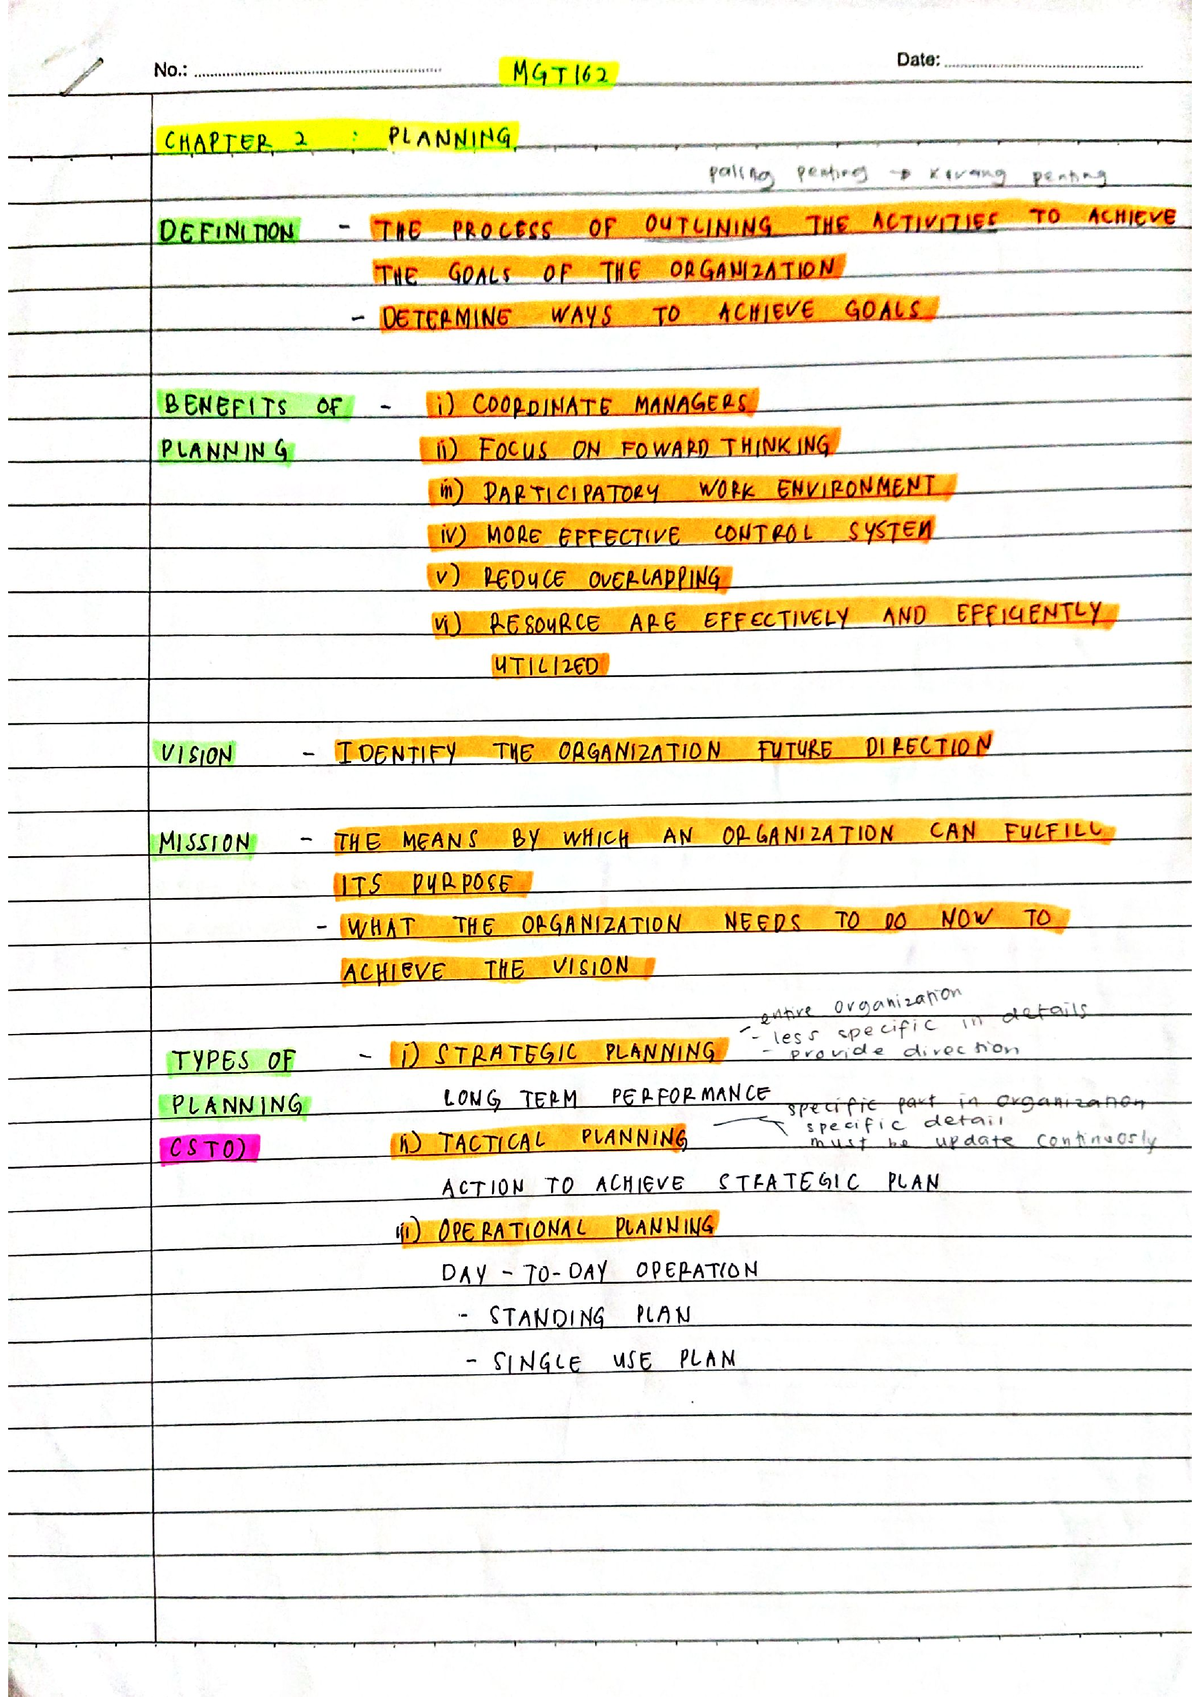 No.:
MGT162
Date:
CHAPTER 2 : PLANNING
paling penting → kurang penting
DEFINITION - THE PROCESS OF OUTLINING THE ACTIVITIES TO ACHIEVE
THE GOALS OF THE ORGANIZATION
- DETERMINE WAYS TO ACHIEVE GOALS
BENEFITS OF - i) COORDINATE MANAGERS
PLANNING ii) FOCUS ON FOWARD THINKING
iii) PARTICIPATORY WORK ENVIRONMENT
iv) MORE EFFECTIVE CONTROL SYSTEM
v) REDUCE OVERLAPPING
vi) RESOURCE ARE EFFECTIVELY AND EFFICIENTLY
UTILIZED
VISION - IDENTIFY THE ORGANIZATION FUTURE DIRECTION
MISSION - THE MEANS BY WHICH AN ORGANIZATION CAN FULFILL
ITS PURPOSE
- WHAT THE ORGANIZATION NEEDS TO DO NOW TO
ACHIEVE THE VISION
- entire organization
- less specific in details
- provide direction
TYPES OF - i) STRATEGIC PLANNING
PLANNING LONG TERM PERFORMANCE
specific part in organization
specific detail
must be update continuosly
(STO) ii) TACTICAL PLANNING
ACTION TO ACHIEVE STRATEGIC PLAN
iii) OPERATIONAL PLANNING
DAY - TO - DAY OPERATION
- STANDING PLAN
- SINGLE USE PLAN